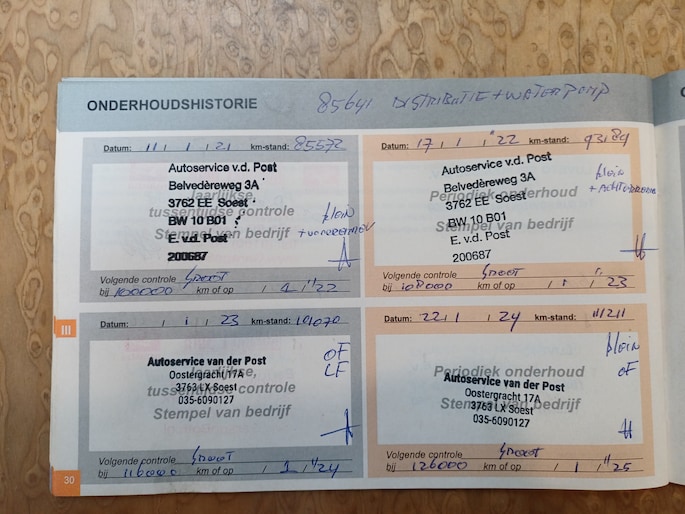 ONDERHOUDSHISTORIE
85641 DISTRIBUTIE + WATERPOMP
Datum: 11 / 1 / 21 km-stand: 85572
Autoservice v.d. Post
Belvedèreweg 3A
Jaarlijkse,
3762 EE Soest
tussentijdse controle
BW 10 B01
Stempel van bedrijf
E. v.d. Post
200687
klein
Volgende controle GROOT
bij 100000 km of op / 1 / 22
Datum: 17 / 1 / 22 km-stand:
Autoservice v.d. Post
Belvedèreweg 3A
Periodiek onderhoud
3762 EE Soest
BW 10 B01
Stempel van bedrijf
E. v.d. Post
200687
klein
Volgende controle GROOT
bij 108000 km of op / / 23
III
Datum: / / 23 km-stand: 101070
Autoservice van der Post
Oostergracht 17A
Jaarlijkse,
3763 LX Soest
tussentijdse controle
035-6090127
Stempel van bedrijf
OF
LF
Volgende controle GROOT
bij 116000 km of op / 1 / 24
Datum: 22 / / 24 km-stand: 111211
Periodiek onderhoud
Autoservice van der Post
Oostergracht 17A
Stempel van bedrijf
3763 LX Soest
035-6090127
klein
OF
Volgende controle GROOT
bij 126000 km of op / 1 / 25
30